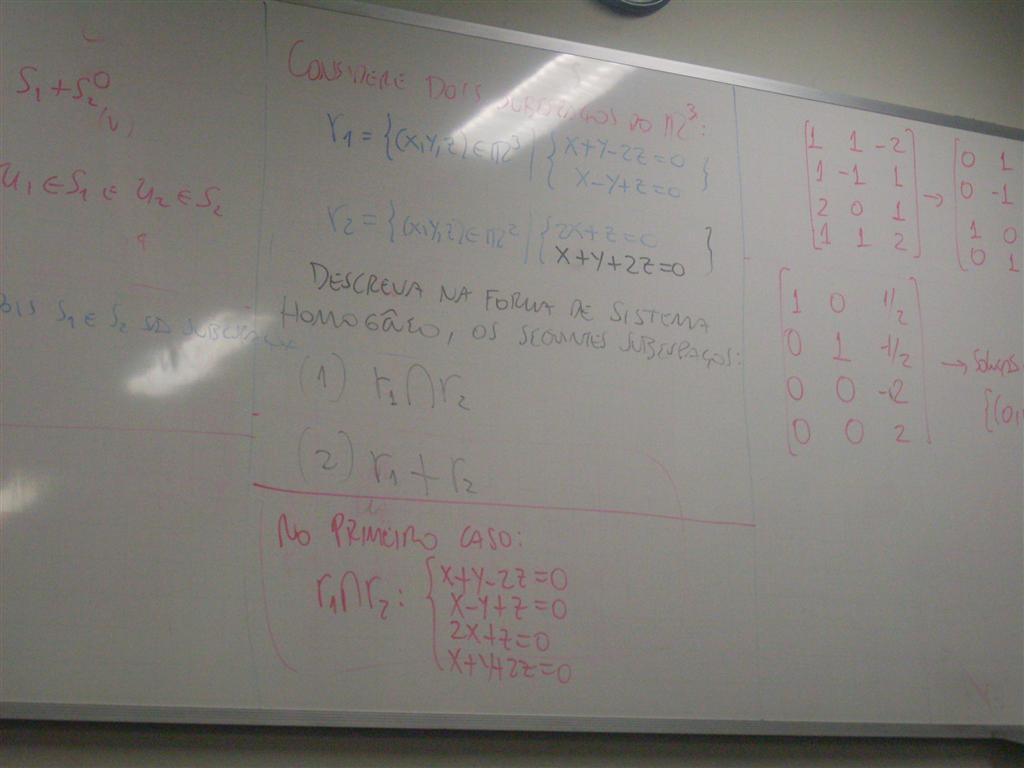 S₁+S₂
(v)
u₁∈S₁ e u₂∈S₂
S₁ e S₂
CONSIDERE DOIS SUBESPAÇOS DO ℝ³:
r₁ = {(x,y,z)∈ℝ³ | { x+y-2z=0
x-y+z=0 }
r₂ = {(x,y,z)∈ℝ² | { 2x+z=0
x+y+2z=0 }
DESCREVA NA FORMA DE SISTEMA
HOMOGÊNEO, OS SEGUINTES SUBESPAÇOS:
(1) r₁∩r₂
(2) r₁+r₂
NO PRIMEIRO CASO:
r₁∩r₂: { x+y-2z=0
x-y+z=0
2x+z=0
x+y+2z=0
1 1 -2
1 -1 1
2 0 1
1 1 2
→
0 1
0 -1
1 0
0 1
1 0 1/2
0 1 -1/2
0 0 -2
0 0 2
→ Solução
{(0,